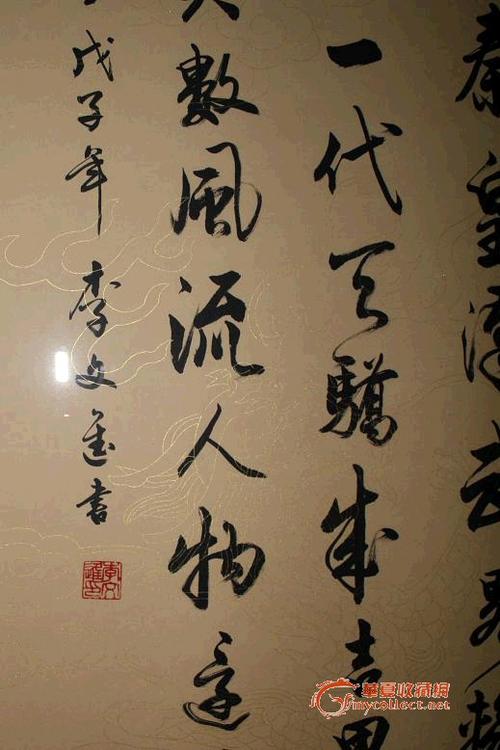 秦皇漢武畧輸
一代天驕成吉思
矣數風流人物還
戊子年 李文書
華夏收藏網
mycollect.net